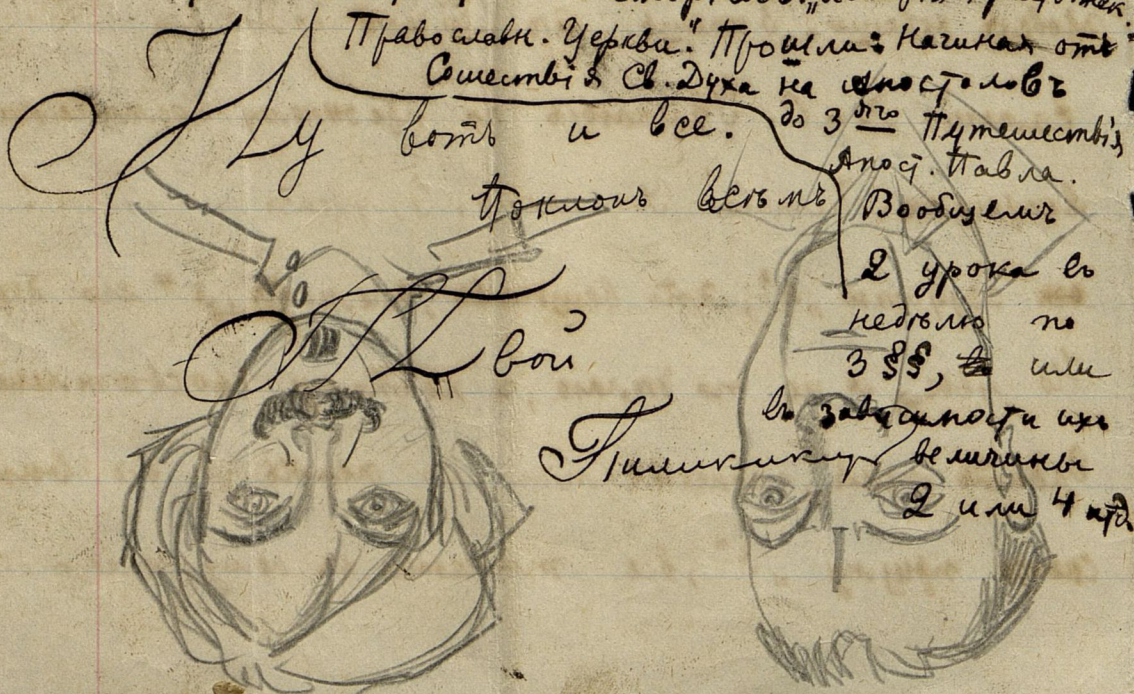 Православн. Церкви." Прошли: Начиная отъ
Сошествія Св. Духа на Апостоловъ
до 3яго Путешествія
Апост. Павла.
Вообщемъ
2 урока въ
недѣлю по
3 §§, или
въ зависимости ихъ
величины
2 или 4 итд.
Ну вотъ и все.
Поклонъ всѣмъ
Твой